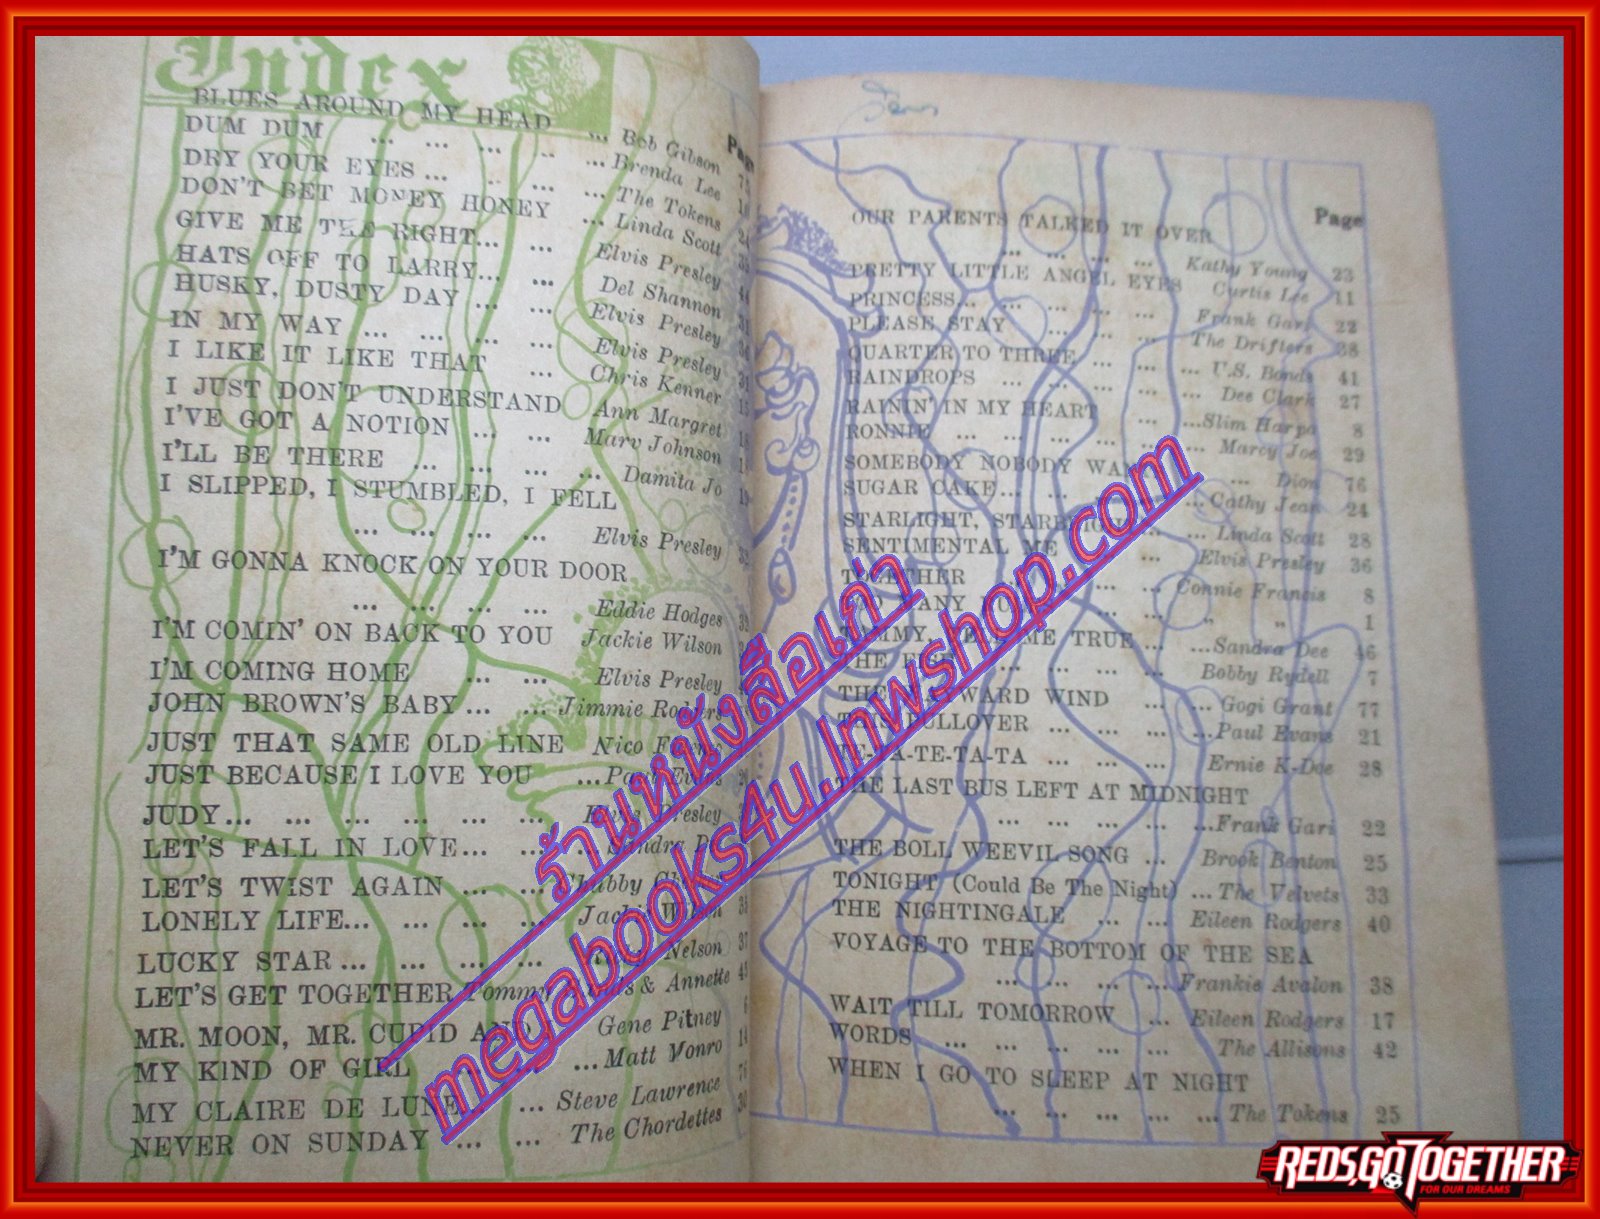 Index
Page
BLUES AROUND MY HEAD ... Bob Gibson 75
DUM DUM ... ... ... ... ... Brenda Lee
DRY YOUR EYES ... ... ... ... The Tokens 24
DON'T BET MONEY HONEY ... Linda Scott
GIVE ME THE RIGHT... ... Elvis Presley 44
HATS OFF TO LARRY... ... Del Shannon 31
HUSKY, DUSTY DAY ... ... Elvis Presley
IN MY WAY ... ... ... ... Elvis Presley
I LIKE IT LIKE THAT ... Chris Kenner
I JUST DON'T UNDERSTAND Ann Margret 18
I'VE GOT A NOTION ... ... Marv Johnson
I'LL BE THERE ... ... ... ... Damita Jo
I SLIPPED, I STUMBLED, I FELL
... ... ... ... Elvis Presley 32
I'M GONNA KNOCK ON YOUR DOOR
... ... ... ... Eddie Hodges
I'M COMIN' ON BACK TO YOU Jackie Wilson
I'M COMING HOME ... ... Elvis Presley
JOHN BROWN'S BABY ... ... Jimmie Rodgers
JUST THAT SAME OLD LINE Nico
JUST BECAUSE I LOVE YOU ... Paul Evans
JUDY ... ... ... ... ... ... Elvis Presley
LET'S FALL IN LOVE... ... Sandra
LET'S TWIST AGAIN ... ... Chubby
LONELY LIFE... ... ... ... Jackie Wilson
LUCKY STAR ... ... ... ... Nelson 37
LET'S GET TOGETHER Tommy & Annette
MR. MOON, MR. CUPID AND Gene Pitney 6
MY KIND OF GIRL ... Matt Monro 14
MY CLAIRE DE LUNE... ... Steve Lawrence
NEVER ON SUNDAY ... ... The Chordettes 30
Page
OUR PARENTS TALKED IT OVER
... ... ... ... Kathy Young 23
PRETTY LITTLE ANGEL EYES Curtis Lee 11
PRINCESS... ... ... ... ... Frank Gari 22
PLEASE STAY ... ... ... The Drifters 38
QUARTER TO THREE ... ... ... U.S. Bonds 41
RAINDROPS ... ... ... ... ... Dee Clark 27
RAININ' IN MY HEART ... ...Slim Harpo 8
RONNIE ... ... ... ... ... ... Marcy Joe 29
SOMEBODY NOBODY WANTS ... Dion 76
SUGAR CAKE... ... ...Cathy Jean 24
STARLIGHT, STARBRIGHT ... Linda Scott 28
SENTIMENTAL ME ... Elvis Presley 36
TOGETHER ... ... Connie Francis 8
... ... „ „ 1
TAMMY, TELL ME TRUE ... ...Sandra Dee 46
THE FISH ... ... ... ... Bobby Rydell 7
THE WAYWARD WIND ... ... Gogi Grant 77
THIS PULLOVER ... ... ... ...Paul Evans 21
TE-TA-TE-TA-TA ... ... ... Ernie K-Doe 28
THE LAST BUS LEFT AT MIDNIGHT
... ... ... ... ...Frank Gari 22
THE BOLL WEEVIL SONG ... Brook Benton 25
TONIGHT (Could Be The Night) ... The Velvets 33
THE NIGHTINGALE ... ... Eileen Rodgers 40
VOYAGE TO THE BOTTOM OF THE SEA
... ... ... ...Frankie Avalon 38
WAIT TILL TOMORROW ... Eileen Rodgers 17
WORDS ... ... ... ... ... The Allisons 42
WHEN I GO TO SLEEP AT NIGHT
... ... ... ... ... The Tokens 25
ร้านหนังสือเก่า
megabooks4u.lnwshop.com
REDS,GO TOGETHER
FOR OUR DREAMS